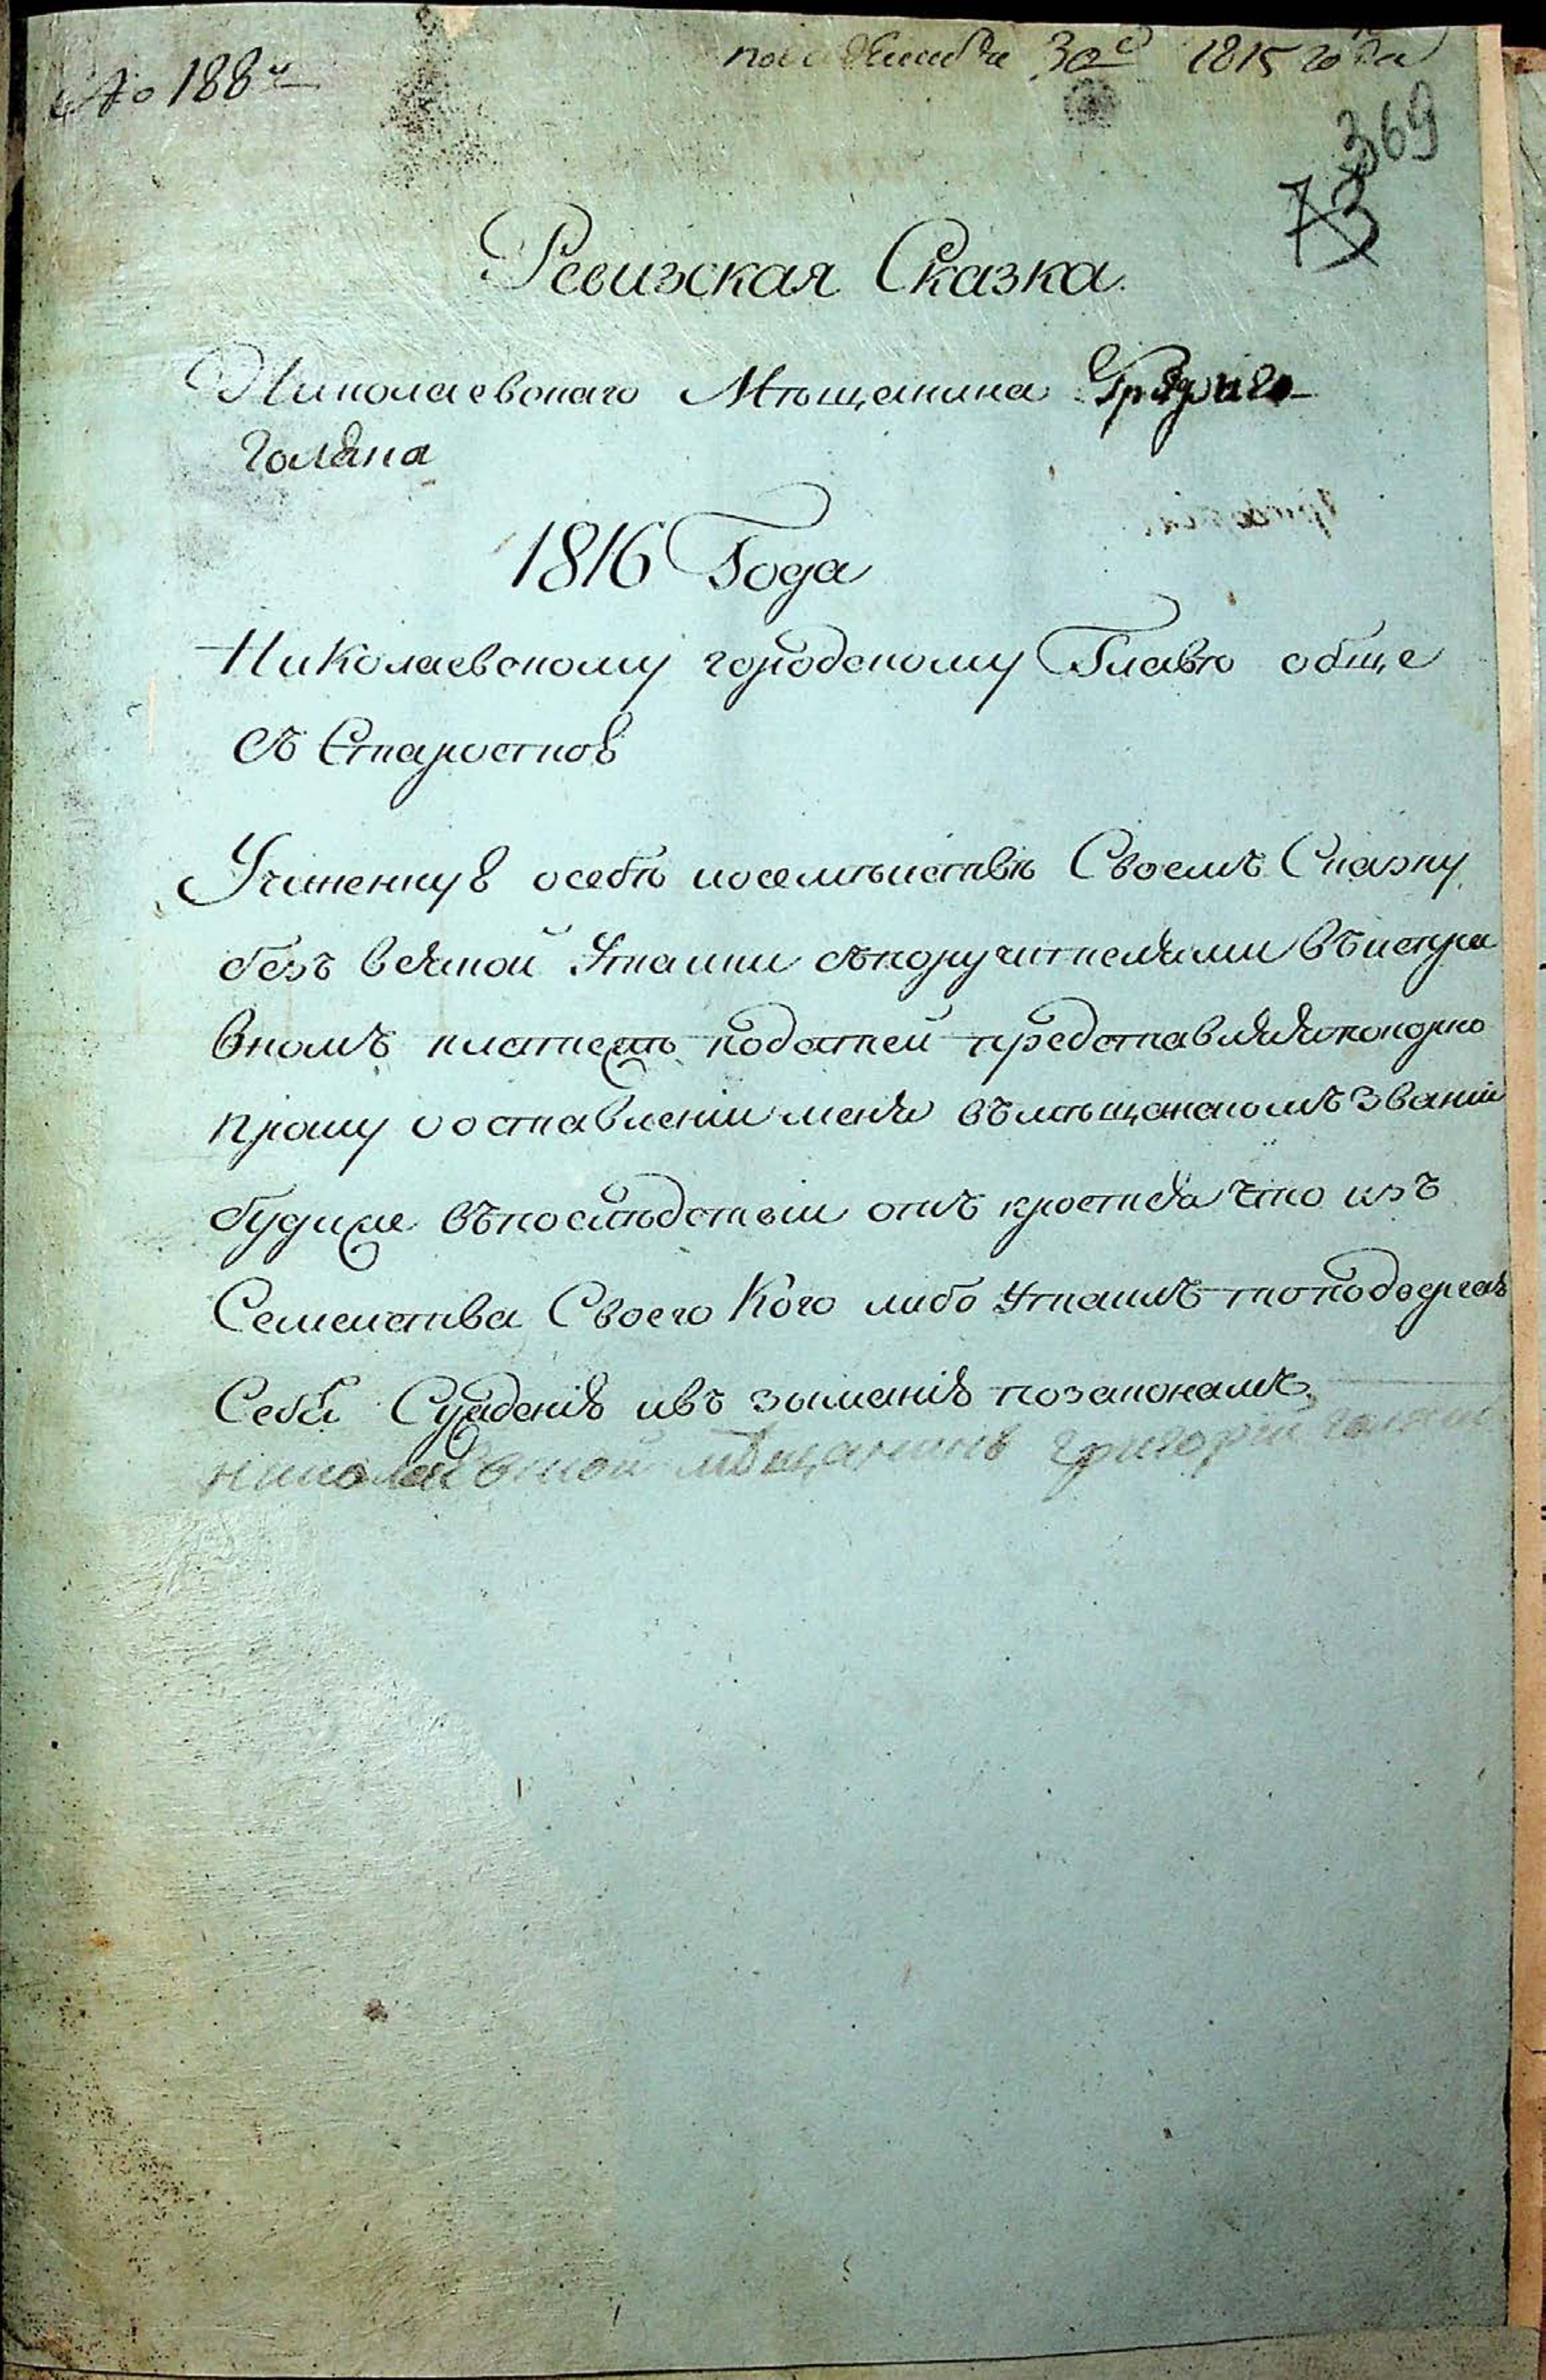 № 188й
30го 1815 года
369
73
Ревизская Сказка.
Николаевскаго Мѣщанина
Голяна
1816 Года
Николаевскому городскому Главѣ обще
съ Старостою
Учиненную о себѣ и о семѣйствѣ Своемъ Сказку
безъ всякой Утайки съ поручителями въ испра
вномъ платежѣ податей представляя покорно
прошу о оставлении меня въ мѣщанскомъ звании
буди же въ послѣдствии отъ кроется что изъ
Семейства Своего Кого либо Утаилъ то подвергаю
Себя Суждению и въ зысканию по законамъ.
николаевской мѣщанинъ григорий голянъ